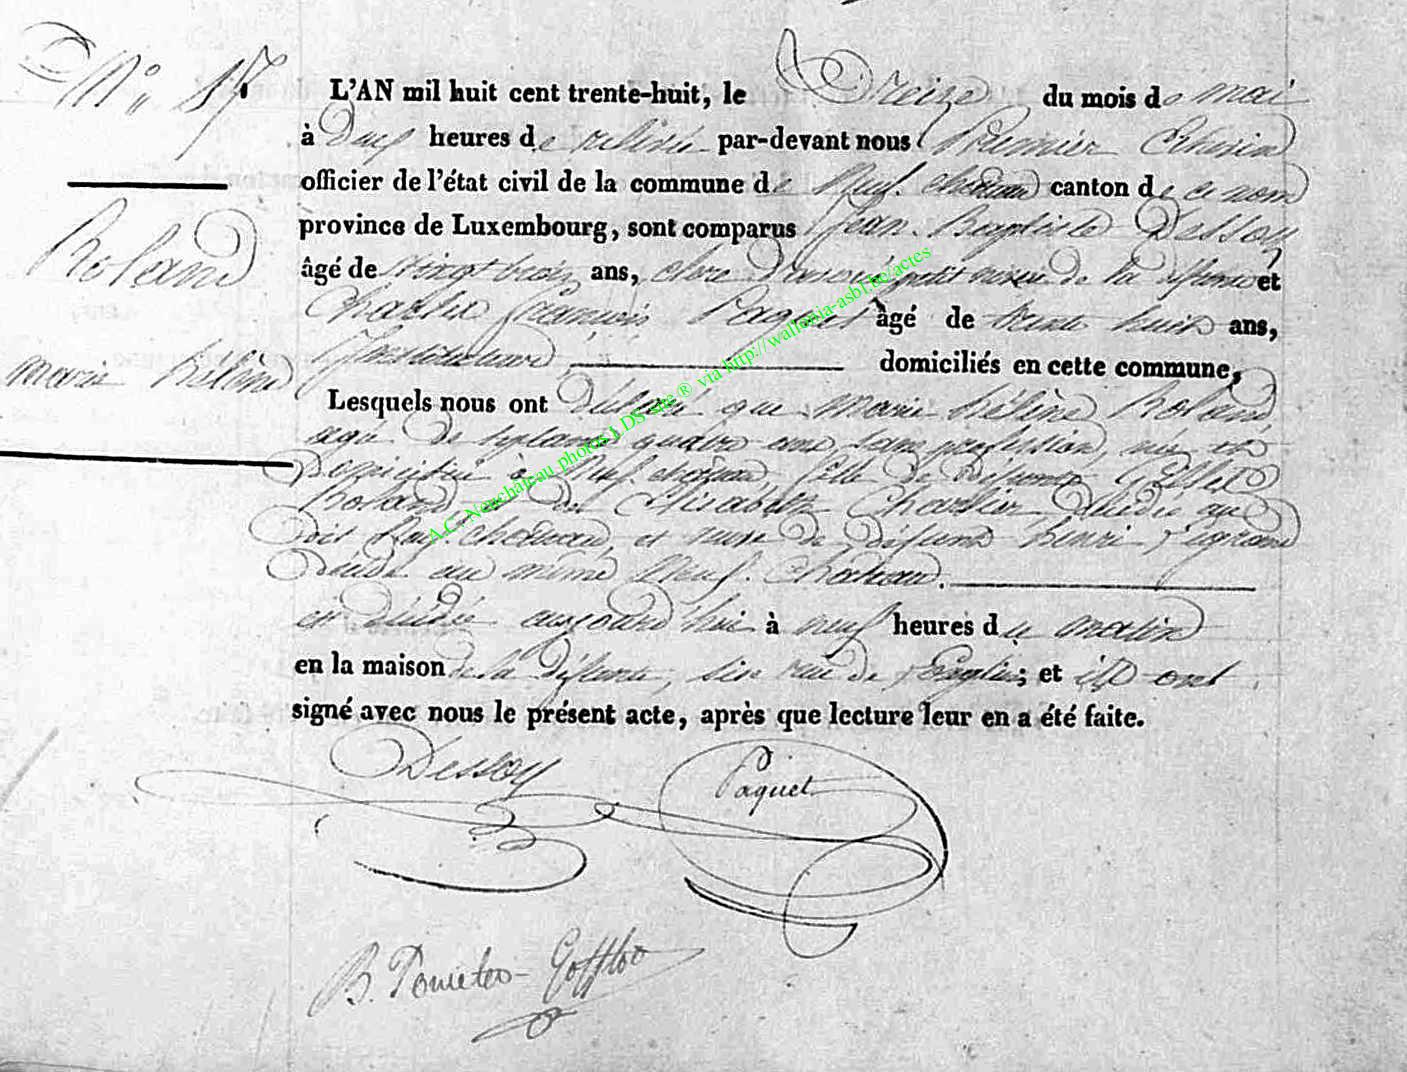 N° 17
Roland
marie hélène
L'AN mil huit cent trente-huit, le Treize du mois de mai
à Deux heures de relevée par-devant nous Premier Echevin
officier de l'état civil de la commune de Neuf-château canton de ce nom
province de Luxembourg, sont comparus Jean-Baptiste Dessoy
âgé de vingt trois ans, clerc petit neveu de la défunte et
Charles François Paquet âgé de trente huit ans,
Instituteur domiciliés en cette commune,
Lesquels nous ont Déclaré que marie hélène Roland
agée de septante quatre ans, sans profession, née et
Domiciliée à Neuf-château, fille de Défunts Gilles
Roland et de Elisabeth Charlier, décédés au
dit Neuf-château, et veuve de Défunt henri Legrand
Décédé au même Neuf-Château.
est décédée aujourd'hui à neuf heures du matin
en la maison de la Défunte, sise rue de l'Eglise; et ils ont
signé avec nous le présent acte, après que lecture leur en a été faite.
Dessoy Paquet
B.
A.C. Neufchâteau photos LDS site ® via http://wallonia-asbl.be/actes